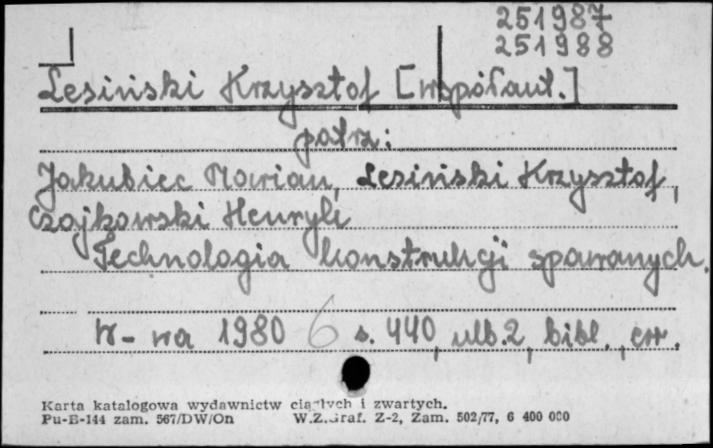 251987
251988
Lesiński Krzysztof [współaut.]
patrz:
Jakubiec Marian, Lesiński Krzysztof,
Czajkowski Henryk
Technologia konstrukcji spawanych.
W-wa 1980 6 s. 440, ulb. 2, bibl., err.
Karta katalogowa wydawnictw ciągłych i zwartych.
Pu-B-144 zam. 567/DW/On W.Z.Graf. Z-2, Zam. 502/77, 6 400 000